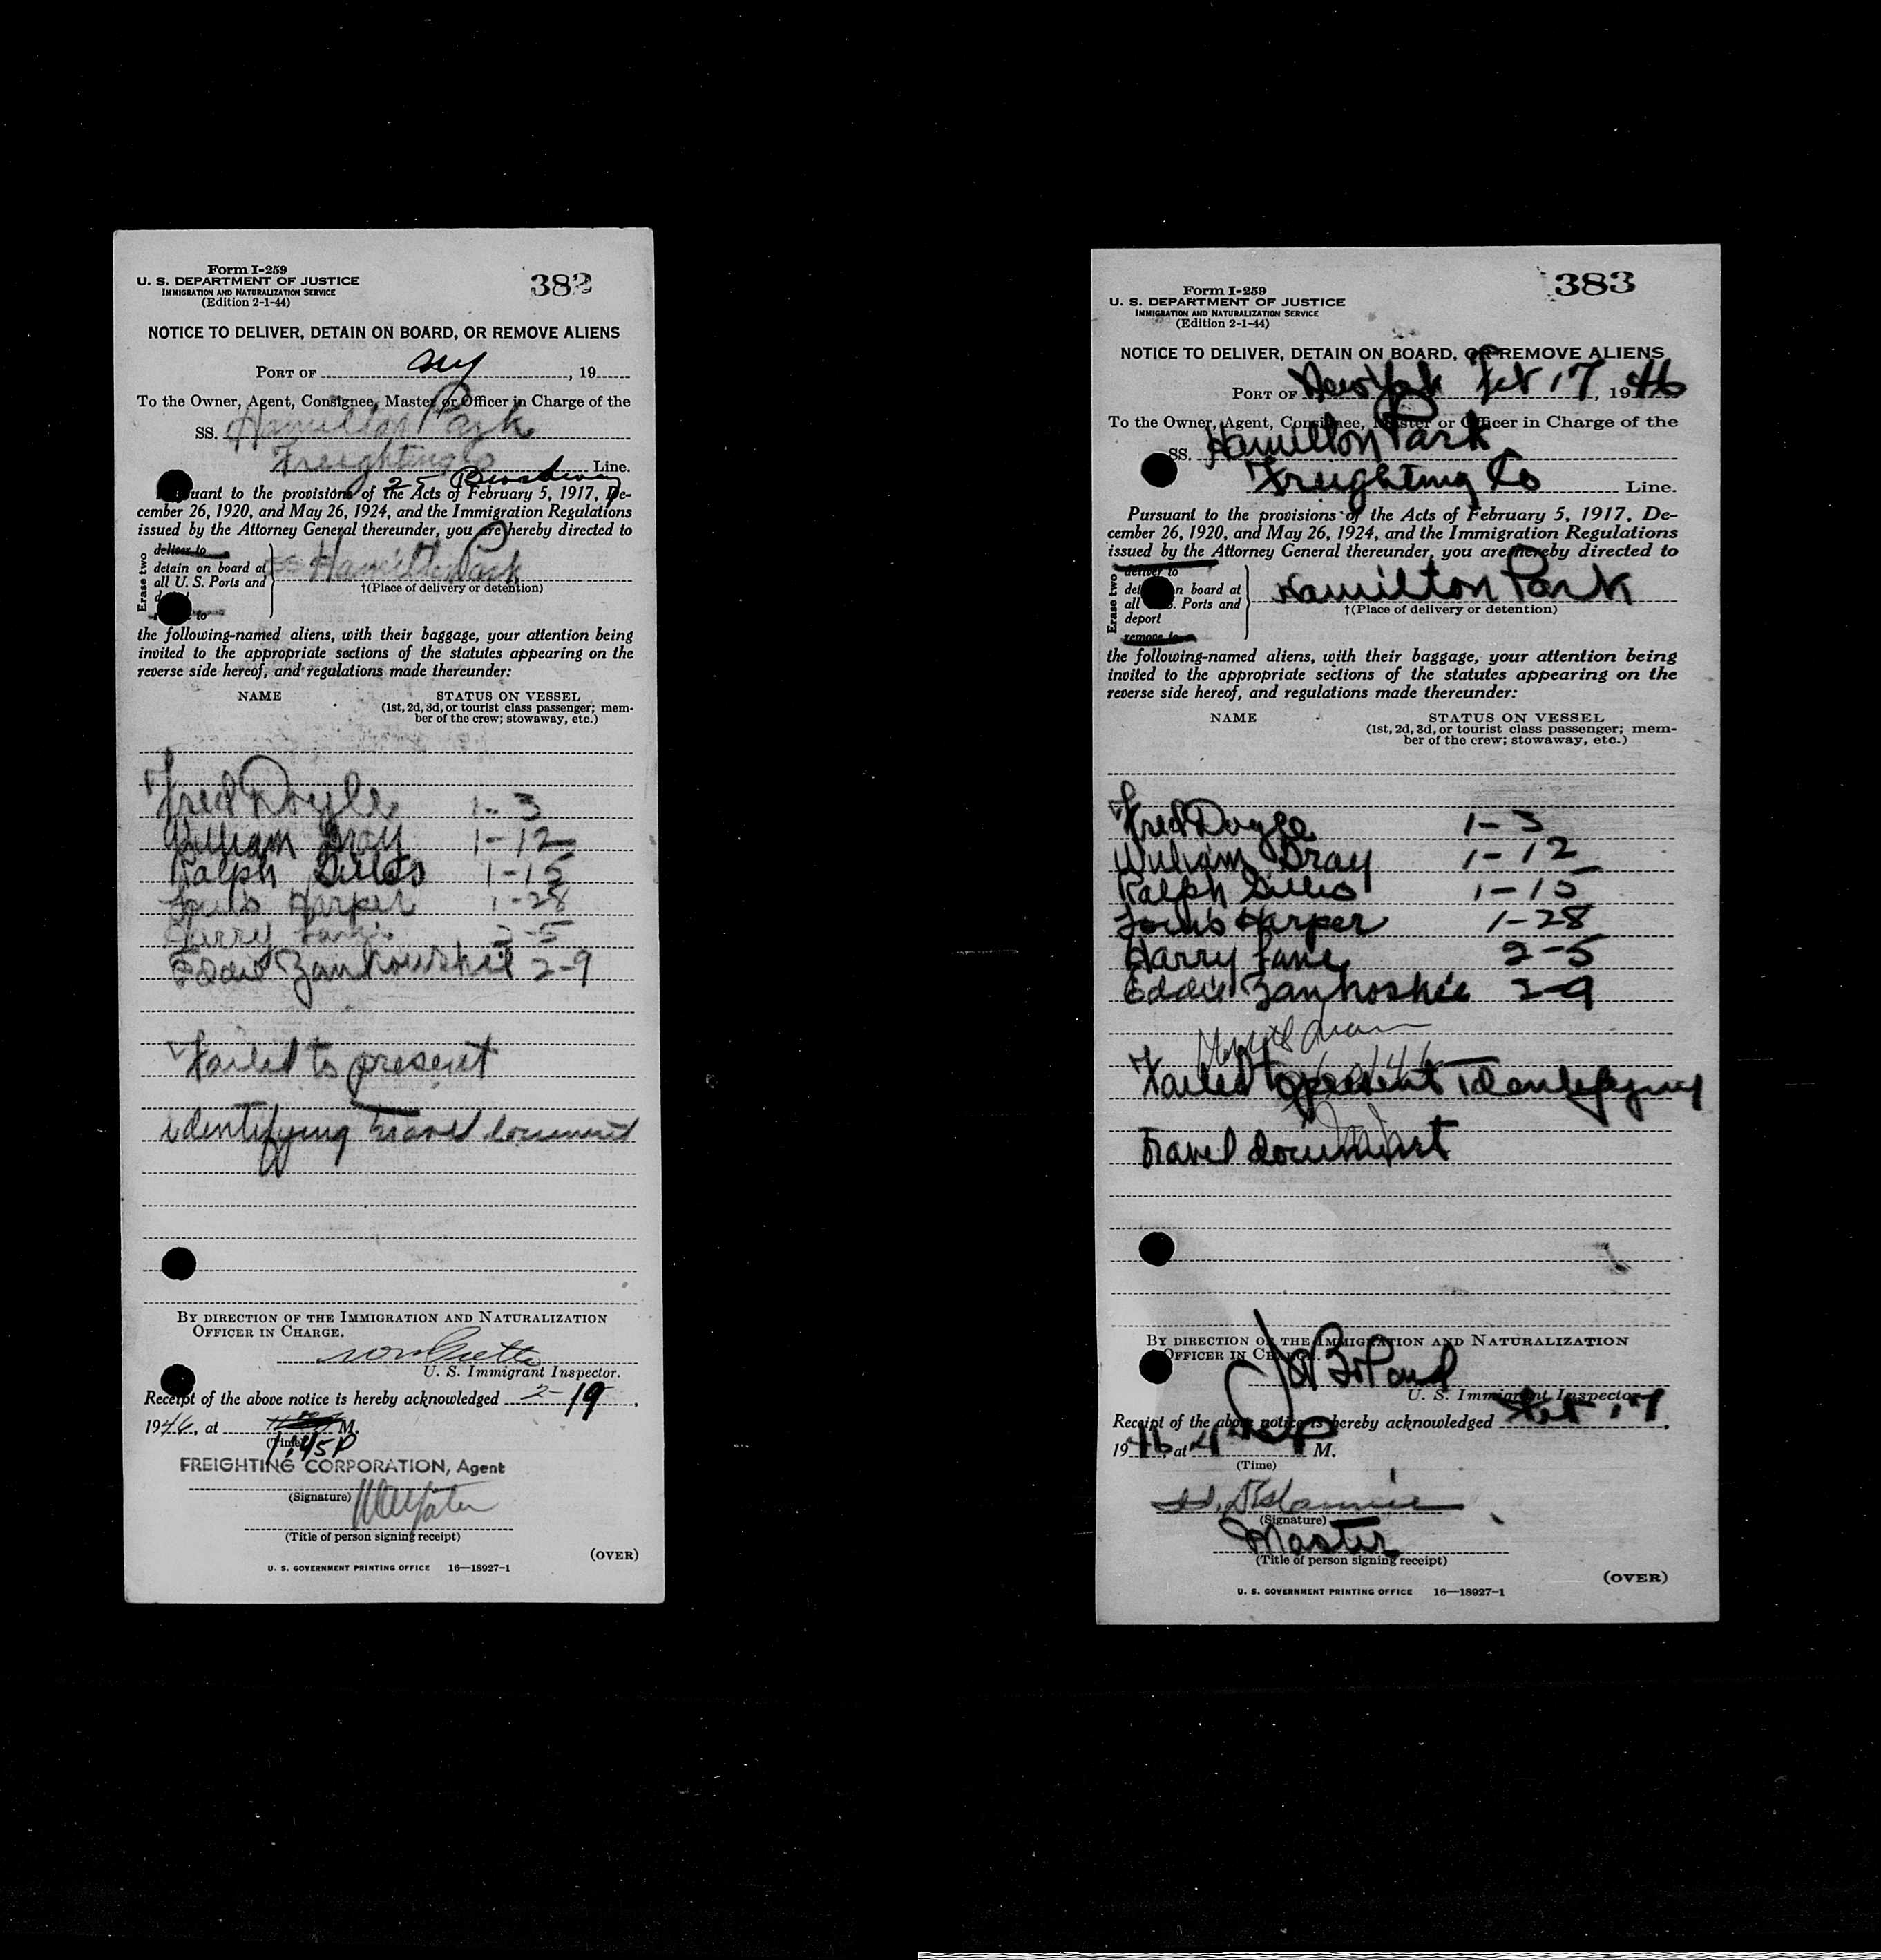 Form I-259
U. S. DEPARTMENT OF JUSTICE
IMMIGRATION AND NATURALIZATION SERVICE
(Edition 2-1-44)
382
NOTICE TO DELIVER, DETAIN ON BOARD, OR REMOVE ALIENS
PORT OF NY, 19
To the Owner, Agent, Consignee, Master or Officer in Charge of the
SS. Hamilton Park
Freighting Co Line.
25 Broadway
Pursuant to the provisions of the Acts of February 5, 1917, De-
cember 26, 1920, and May 26, 1924, and the Immigration Regulations
issued by the Attorney General thereunder, you are hereby directed to
Erase two
deliver to
detain on board at
all U. S. Ports and
to
SS Hamilton Park
†(Place of delivery or detention)
the following-named aliens, with their baggage, your attention being
invited to the appropriate sections of the statutes appearing on the
reverse side hereof, and regulations made thereunder:
NAME STATUS ON VESSEL
(1st, 2d, 3d, or tourist class passenger; mem-
ber of the crew; stowaway, etc.)
Fred Doyle 1-3
William Gray 1-12
Ralph 1-15
Louis Harper 1-28
Harry 2-5
Eddie 2-9
Failed to present
identifying travel document
BY DIRECTION OF THE IMMIGRATION AND NATURALIZATION
OFFICER IN CHARGE.
U. S. Immigrant Inspector.
Receipt of the above notice is hereby acknowledged 2-19,
1946, at M.
(Time)
1:45P
FREIGHTING CORPORATION, Agent
(Signature)
(Title of person signing receipt)
(OVER)
U. S. GOVERNMENT PRINTING OFFICE 16—18927-1
Form I-259
U. S. DEPARTMENT OF JUSTICE
IMMIGRATION AND NATURALIZATION SERVICE
(Edition 2-1-44)
383
NOTICE TO DELIVER, DETAIN ON BOARD, OR REMOVE ALIENS
PORT OF New York Feb 17, 1946
To the Owner, Agent, Consignee, Master or Officer in Charge of the
SS. Hamilton Park
Freighting Co Line.
Pursuant to the provisions of the Acts of February 5, 1917, De-
cember 26, 1920, and May 26, 1924, and the Immigration Regulations
issued by the Attorney General thereunder, you are hereby directed to
Erase two
deliver to
detain on board at
all U. S. Ports and
deport
remove to
Hamilton Park
†(Place of delivery or detention)
the following-named aliens, with their baggage, your attention being
invited to the appropriate sections of the statutes appearing on the
reverse side hereof, and regulations made thereunder:
NAME STATUS ON VESSEL
(1st, 2d, 3d, or tourist class passenger; mem-
ber of the crew; stowaway, etc.)
Fred Doyle 1-3
William Gray 1-12
Ralph Gillis 1-15
Louis Harper 1-28
Harry Lane 2-5
Eddie Zankoskie 2-9
Failed to present identifying
travel document
BY DIRECTION OF THE IMMIGRATION AND NATURALIZATION
OFFICER IN CHARGE.
U. S. Immigrant Inspector.
Receipt of the above notice is hereby acknowledged Feb 17,
1946, at 4 P M.
(Time)
(Signature)
Master
(Title of person signing receipt)
(OVER)
U. S. GOVERNMENT PRINTING OFFICE 16—18927-1